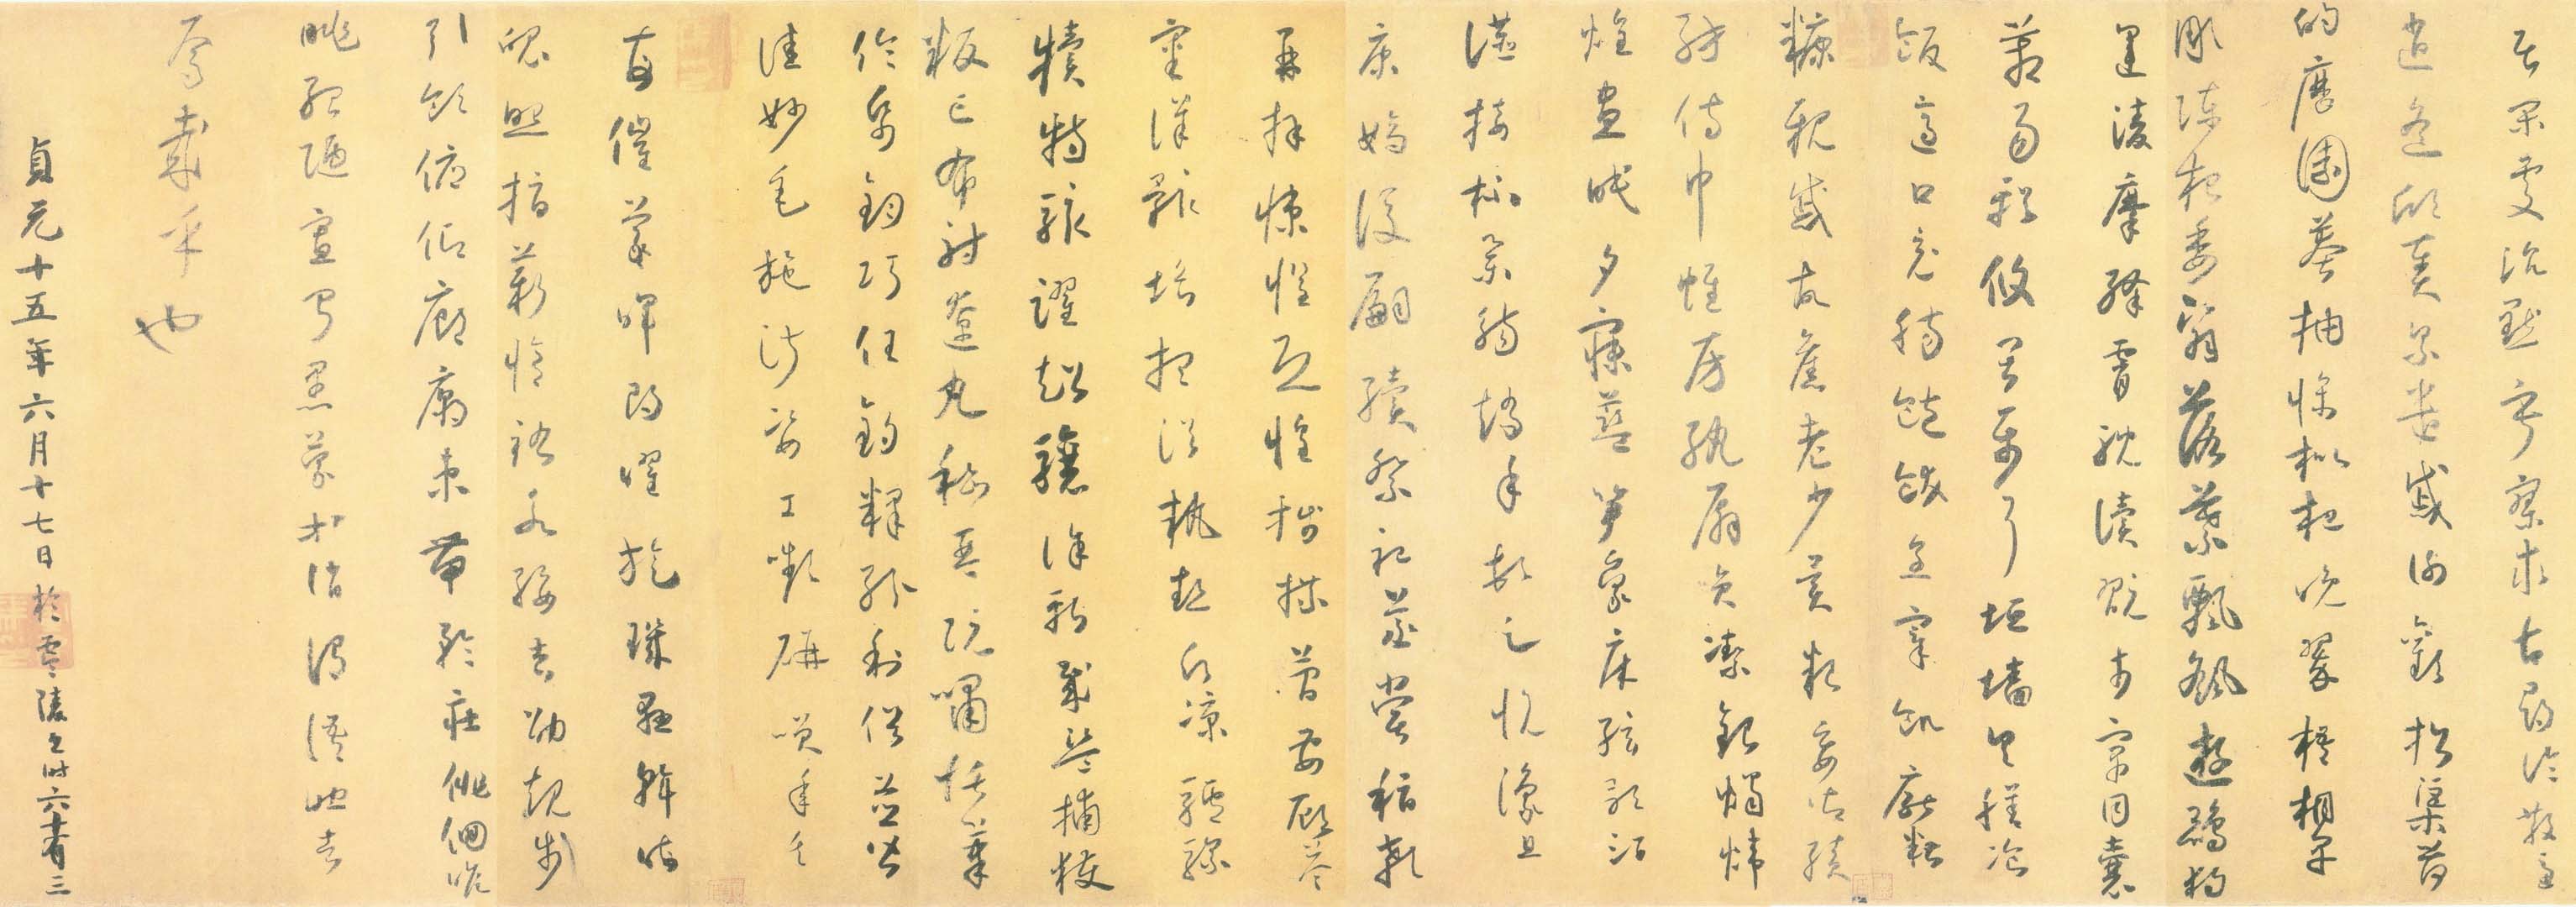 居閑處沉默寂寥求古尋論散慮
逍遙欣奏累遣慼謝歡招渠荷
的歷園莽抽條枇杷晚翠梧桐早
彫陳根委翳落葉飄颻遊鵾獨
運凌摩絳霄耽讀翫市寓目囊
箱易輶攸畏屬耳垣墻具膳飡
飯適口充腸飽飫烹宰飢厭糟
糠親戚故舊老少異糧妾御績
紡侍巾帷房紈扇員潔銀燭煒
煌晝眠夕寐藍笋象床弦歌酒
讌接杯舉觴矯手頓足悅豫且
康嫡後嗣續祭祀蒸嘗稽顙
再拜悚懼恐惶牋牒簡要顧答
審詳骸垢想浴執熱願涼驢騾
犢特駭躍超驤誅斬賊盜捕獲
叛亡布射遼丸嵇琴阮嘯恬筆
倫紙鈞巧任釣釋紛利俗並皆
佳妙毛施淑姿工顰妍笑年矢
每催羲暉朗曜旋璣懸斡晦
魄照指薪修祜永綏吉劭矩步
引領俯仰廊廟束帶矜莊徘徊瞻
眺孤陋寡聞愚蒙等誚謂語助者
焉哉乎也
貞元十五年六月十七日於零陵書時六十有三